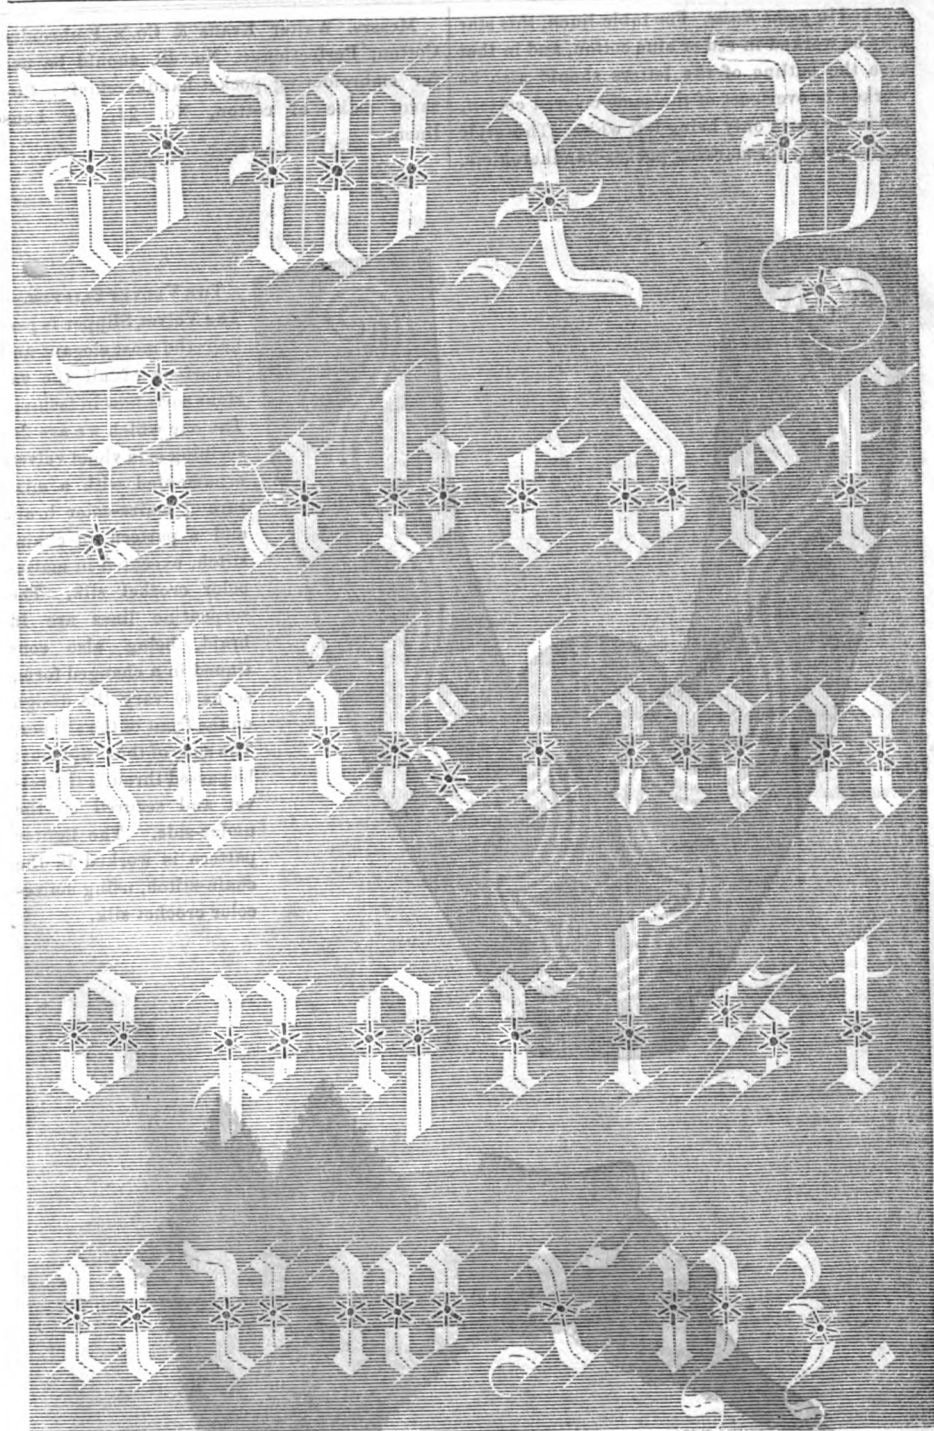 V W X Y
Z a b c d e f
g h i k l m n
o p q r ſ s t
u v w x y z .